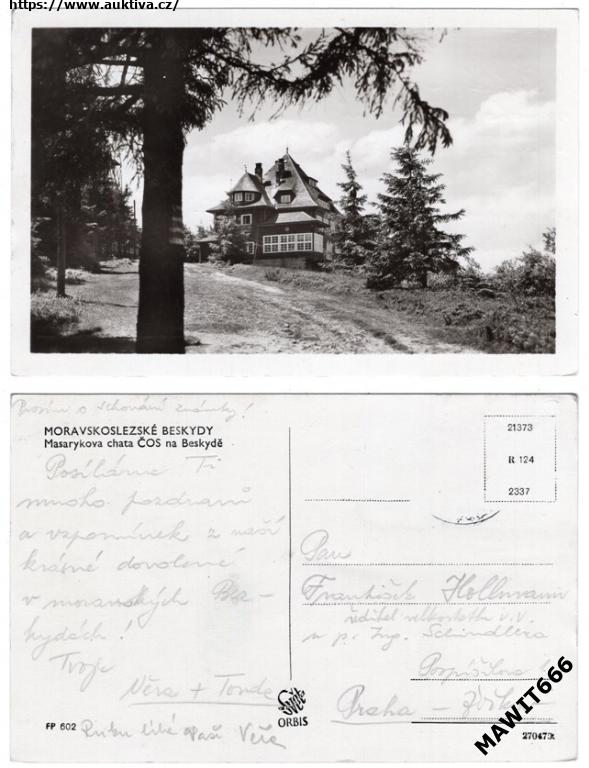 https://www.auktiva.cz/
Prosím o schování známky!
MORAVSKOSLEZSKÉ BESKYDY
Masarykova chata ČOS na Beskydě
Posíláme Ti
mnoho pozdravů
a vzpomínek z naší
krásné dovolené
v moravských Bes-
kydách!
Tvoje
Věra + Tonda
FP 602
Ruku líbá Vaší Věře
21373
R 124
2337
Pan
František Hollmann
ředitel velkostatku v.v.
u p. Ing. Schindlera
Pospíšilova
Praha –
Svět
ORBIS
270473t
MAWIT666